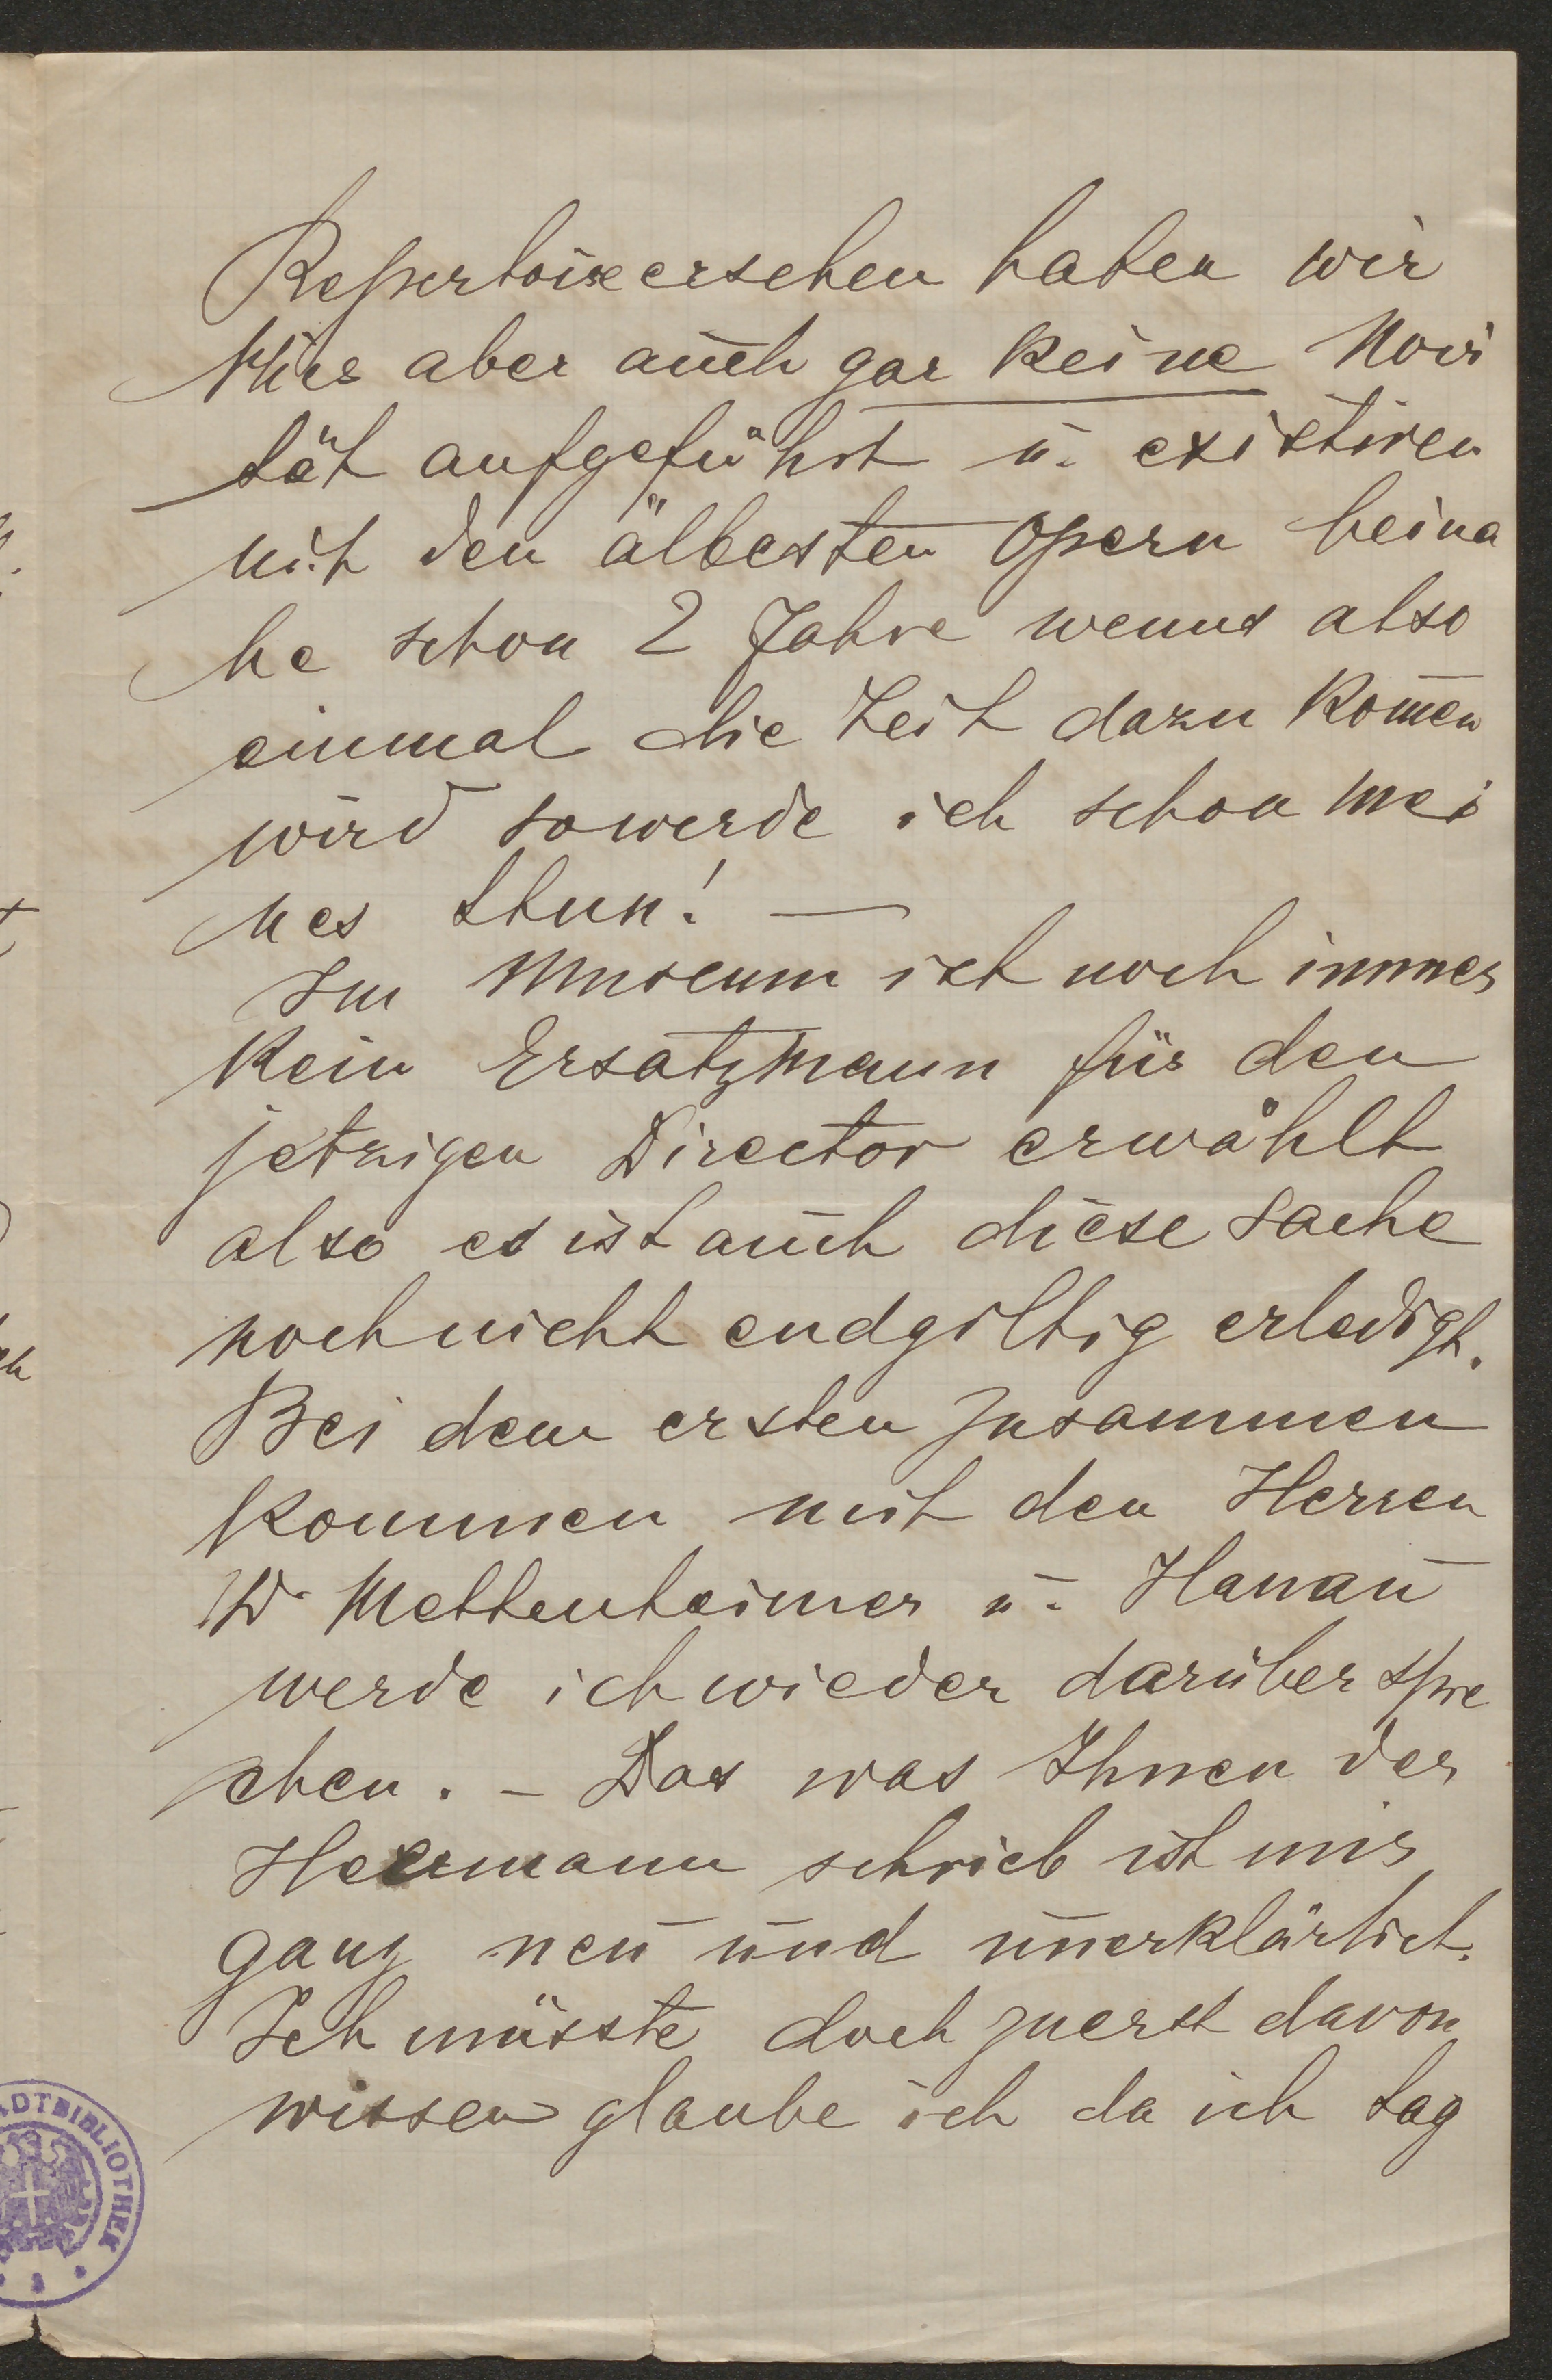 Repertoire ersehen haben wir
hier aber auch gar keine Novi
tät aufgeführt u. existiren
mit den älbesten Opern beina
he schon 2 Jahre wenns also
einmal die Zeit dazu kom̅en
wird so werde ich schon mei
nes thun! —
Im Museum ist noch immer
kein Ersatzmann für den
jetzigen Director erwählt
also es ist auch diese Sache
noch nicht endgiltig erledigt.
Bei dem ersten Zusammen
kommen mit den Herren
Dr Mettenheimer u. Hanau
werde ich wieder darüber spre
chen. – Das was Ihnen der
Heermann schrieb ist mir
ganz neu und unerklärlich.
Ich müsste doch zuerst davon
wissen glaube ich da ich tag
ADTBIBLIOTHEK